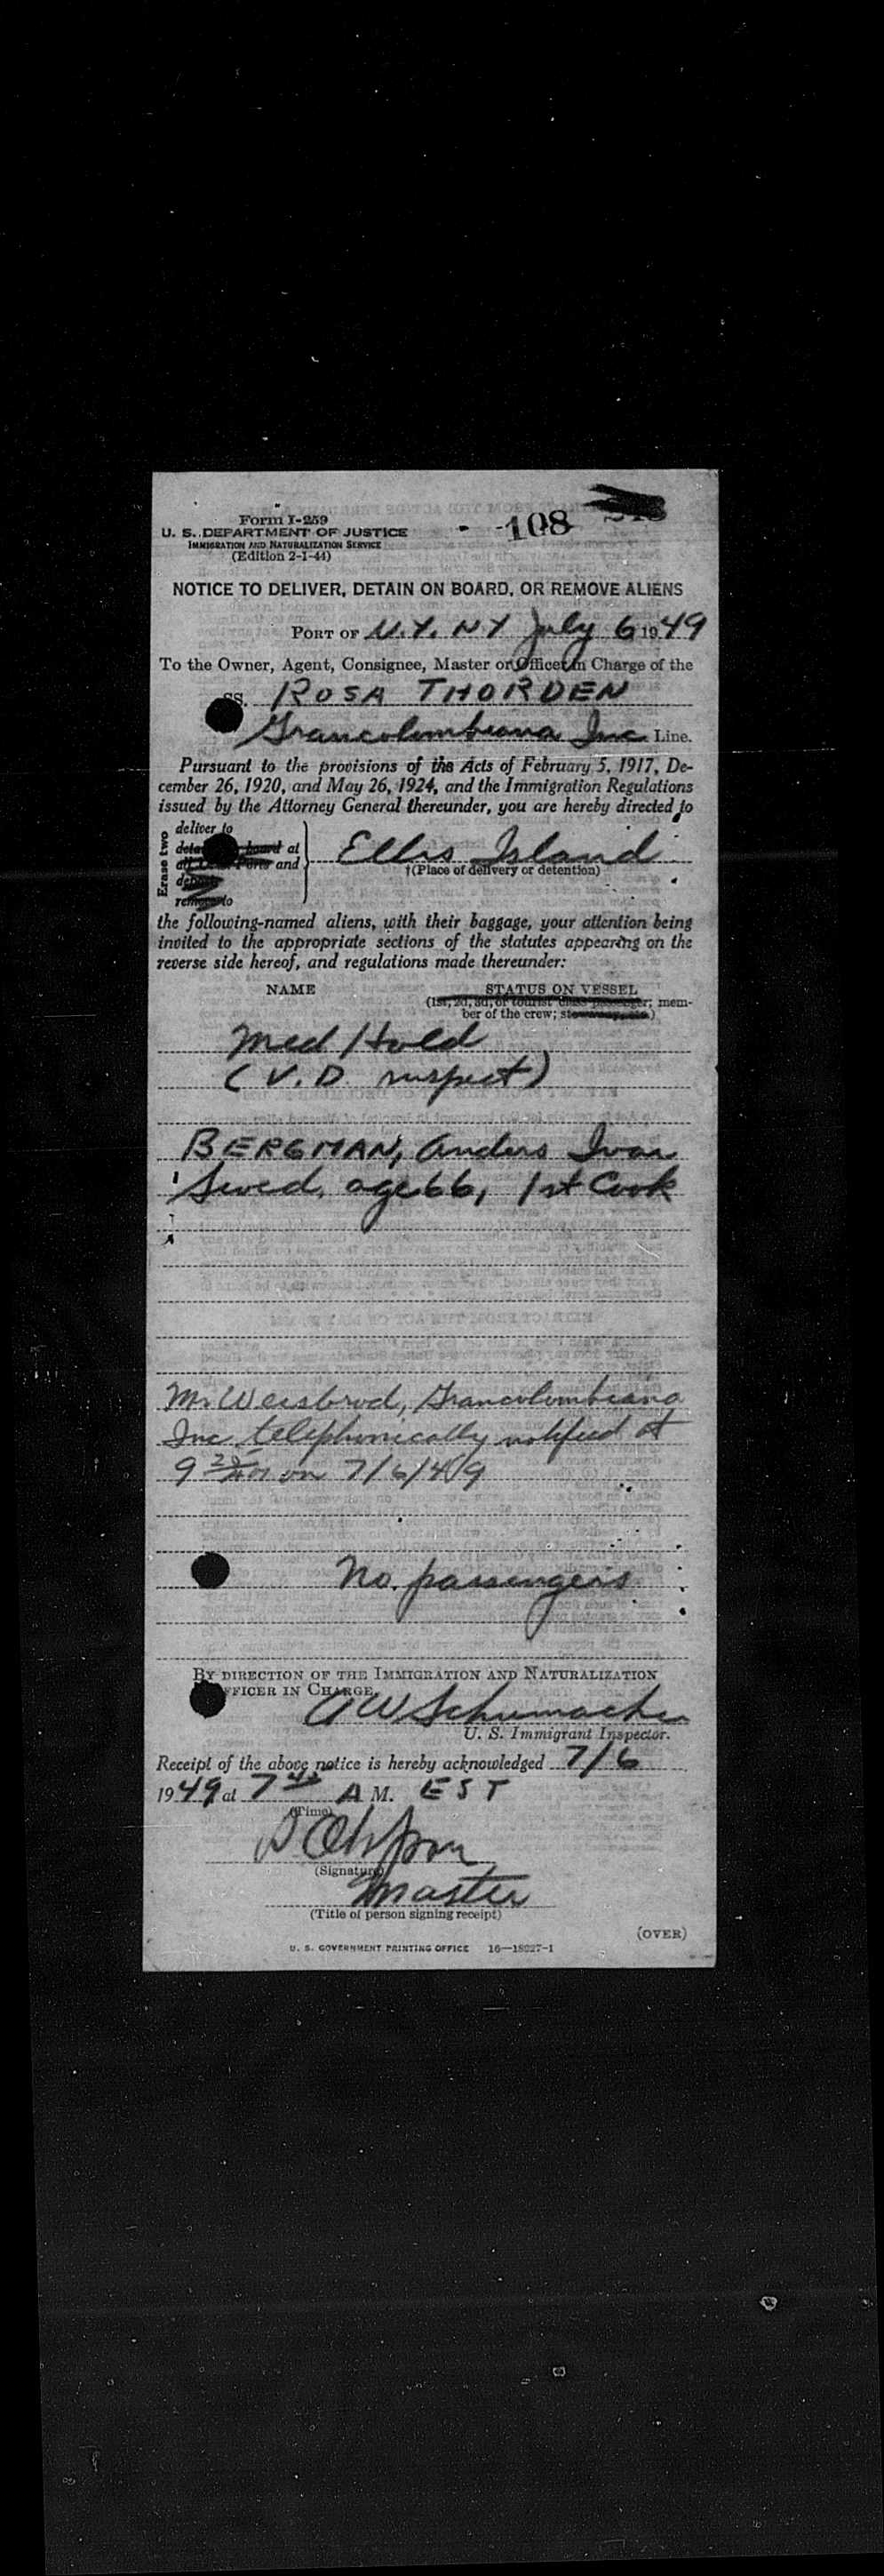 Form I-259
108
U. S. DEPARTMENT OF JUSTICE
IMMIGRATION AND NATURALIZATION SERVICE
(Edition 2-1-44)
NOTICE TO DELIVER, DETAIN ON BOARD, OR REMOVE ALIENS
PORT OF N.Y. NY July 6 1949
To the Owner, Agent, Consignee, Master or Officer in Charge of the
SS. ROSA THORDEN
Grancolombiana Inc Line.
Pursuant to the provisions of the Acts of February 5, 1917, De-
cember 26, 1920, and May 26, 1924, and the Immigration Regulations
issued by the Attorney General thereunder, you are hereby directed to
Erase two
deliver to
board at
Ports and
remove to
Ellis Island
†(Place of delivery or detention)
the following-named aliens, with their baggage, your attention being
invited to the appropriate sections of the statutes appearing on the
reverse side hereof, and regulations made thereunder:
NAME STATUS ON VESSEL
(1st, 2d, 3d, or tourist class passenger; mem-
ber of the crew; stowaway, etc.)
Med Hold
(V.D suspect)
BERGMAN, Anders Ivar
Swed, age 66, 1st Cook
Mr Weisbrod, Grancolombiana
Inc telephonically notified at
9 on 7/6/49
No passengers
BY DIRECTION OF THE IMMIGRATION AND NATURALIZATION
OFFICER IN CHARGE.
A W Schumacher
U. S. Immigrant Inspector.
Receipt of the above notice is hereby acknowledged 7/6
1949 at 7 45 A M. EST
(Time)
(Signature)
Master
(Title of person signing receipt)
(OVER)
U. S. GOVERNMENT PRINTING OFFICE 16—18227-1